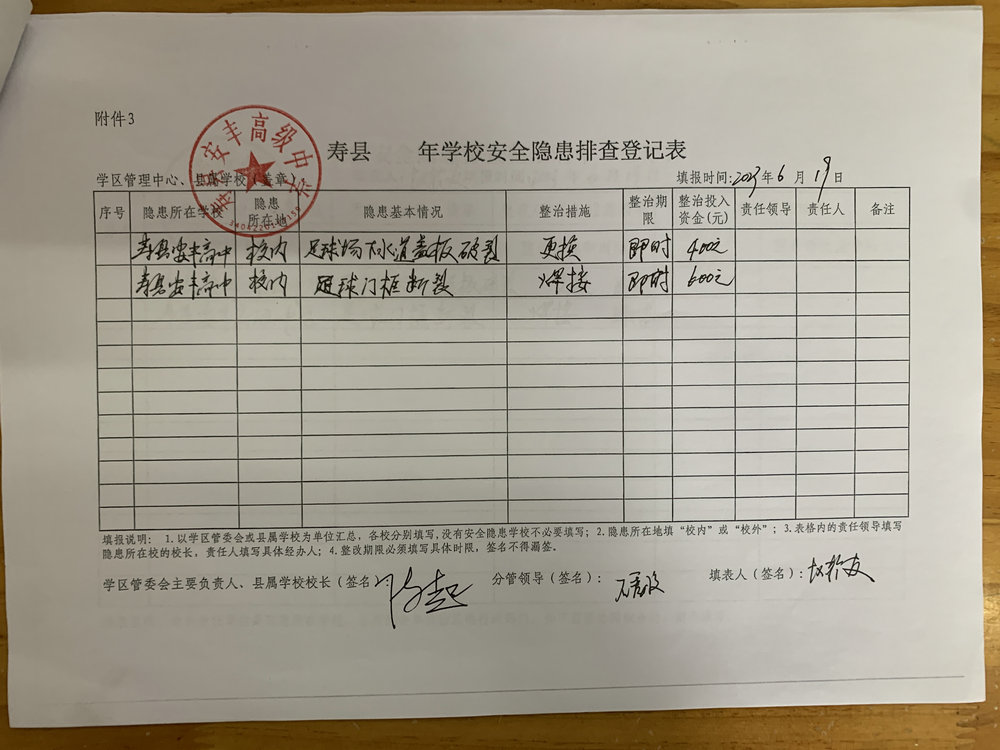 附件3
寿县安丰高级中学
寿县 年学校安全隐患排查登记表
学区管理中心、县属学校(盖章): 填报时间:2023年6月19日
序号 隐患所在学校 隐患所在地 隐患基本情况 整治措施 整治期限 整治投入资金(元) 责任领导 责任人 备注
寿县安丰高中 校内 足球场下水道盖板破裂 更换 即时 400元
寿县安丰高中 校内 足球门框断裂 焊接 即时 600元
填报说明: 1.以学区管委会或县属学校为单位汇总,各校分别填写,没有安全隐患学校不必要填写;2.隐患所在地填“校内”或“校外”;3.表格内的责任领导填写
隐患所在校的校长,责任人填写具体经办人;4.整改期限必须填写具体时限,签名不得漏签。
学区管委会主要负责人、县属学校校长(签名): 分管领导(签名): 填表人(签名):